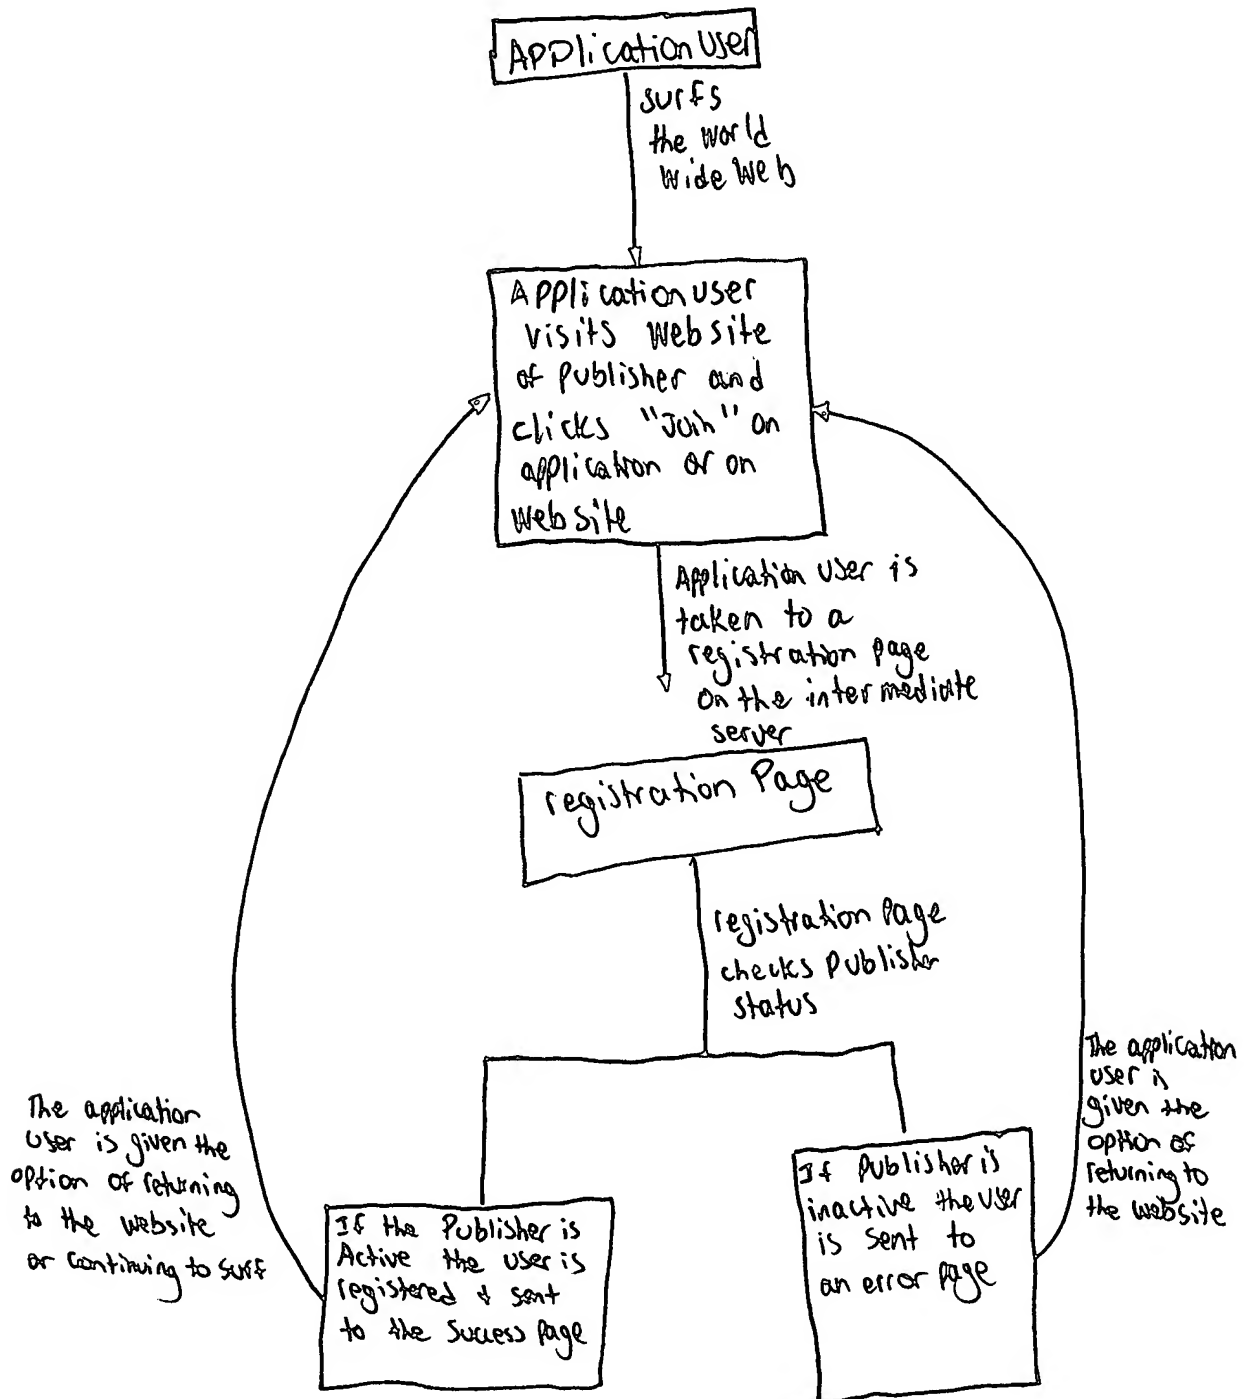 Application User
surfs
the world
wide web
Application user
visits website
of publisher and
clicks "Join" on
application or on
website
Application user is
taken to a
registration page
on the intermediate
server
registration Page
registration Page
checks Publisher
status
The application
user is given the
option of returning
to the website
or continuing to surf
If the Publisher is
Active the user is
registered & sent
to the Success Page
If Publisher is
inactive the user
is sent to
an error page
The application
user is
given the
option of
returning to
the website